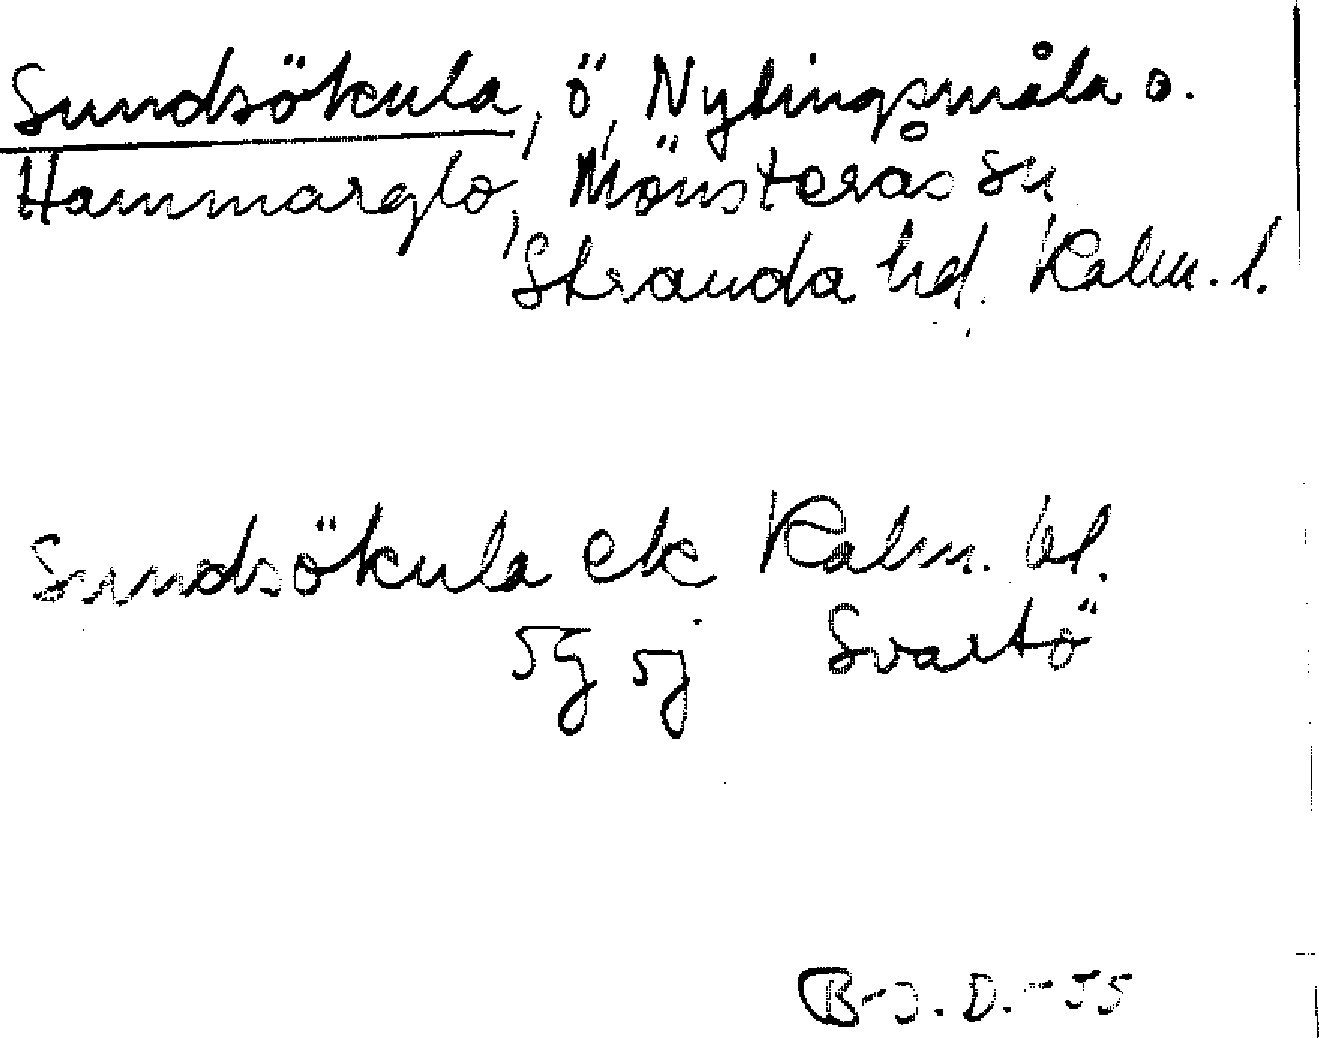 Sundsökula, ö, Nylingsmåla o.
Hammarglo, Mönsterås sn
Stranda hd. Kalm. l.
Sundsökula ek Kalm. bl.
5G 5j Svartö
B-J. D. -55